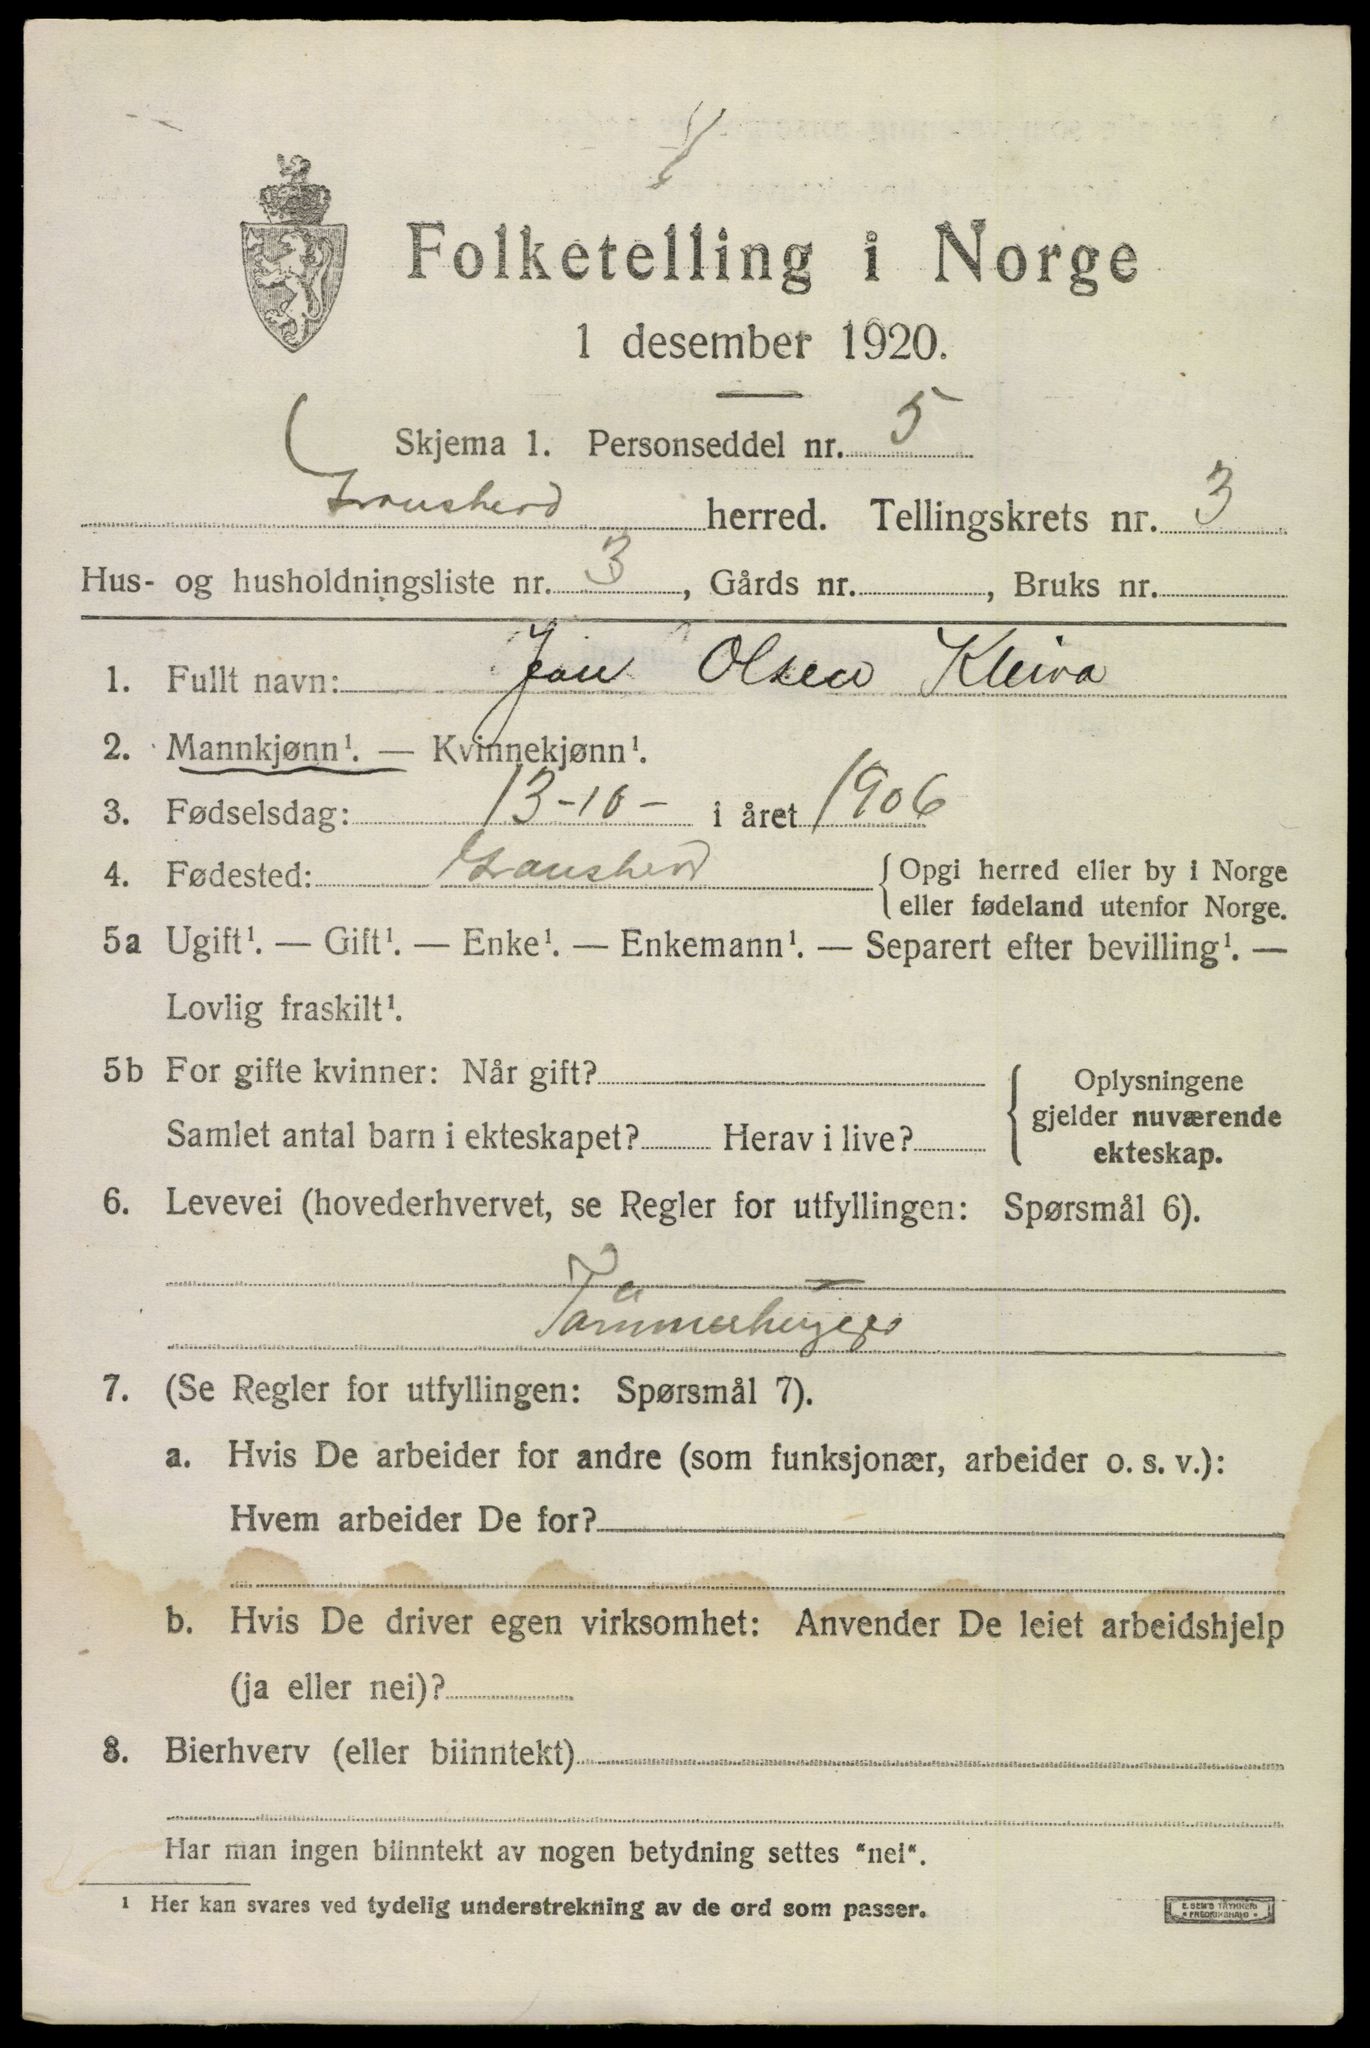 Folketelling i Norge
1 desember 1920.
Skjema 1. Personseddel nr. 5
Gransherd herred. Tellingskrets nr. 3
Hus- og husholdningsliste nr. 3, Gårds nr. , Bruks nr.
1. Fullt navn: Jon Olsen Kleiva
2. Mannkjønn¹. — Kvinnekjønn¹.
3. Fødselsdag: 13-10- i året 1906
4. Fødested: Gransherd {Opgi herred eller by i Norge
eller fødeland utenfor Norge.
5a Ugift¹. — Gift¹. — Enke¹. — Enkemann¹. — Separert efter bevilling¹. —
Lovlig fraskilt¹.
5b For gifte kvinner: Når gift?
Samlet antal barn i ekteskapet? Herav i live?
{Oplysningene
gjelder nuværende
ekteskap.
6. Levevei (hovederhvervet, se Regler for utfyllingen: Spørsmål 6).
Tømmerhugger
7. (Se Regler for utfyllingen: Spørsmål 7).
a. Hvis De arbeider for andre (som funksjonær, arbeider o. s. v.):
Hvem arbeider De for?
b. Hvis De driver egen virksomhet: Anvender De leiet arbeidshjelp
(ja eller nei)?
8. Bierhverv (eller biinntekt)
Har man ingen biinntekt av nogen betydning settes "nei".
¹ Her kan svares ved tydelig understrekning av de ord som passer.
E. SEM'S TRYKKERI
FREDRIKSHALD